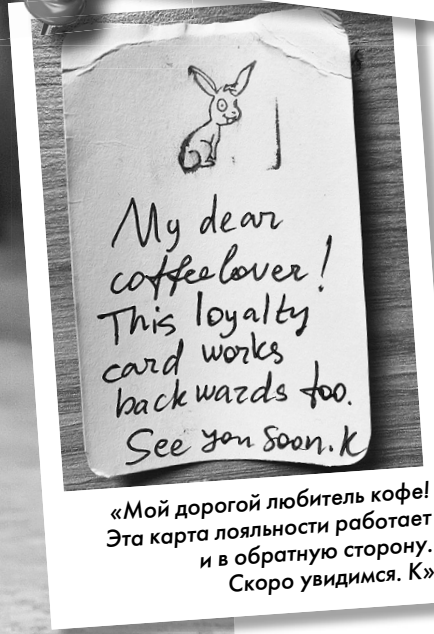 My dear
coffeelover!
This loyalty
card works
backwards too.
See you soon. K
«Мой дорогой любитель кофе!
Эта карта лояльности работает
и в обратную сторону.
Скоро увидимся. К»